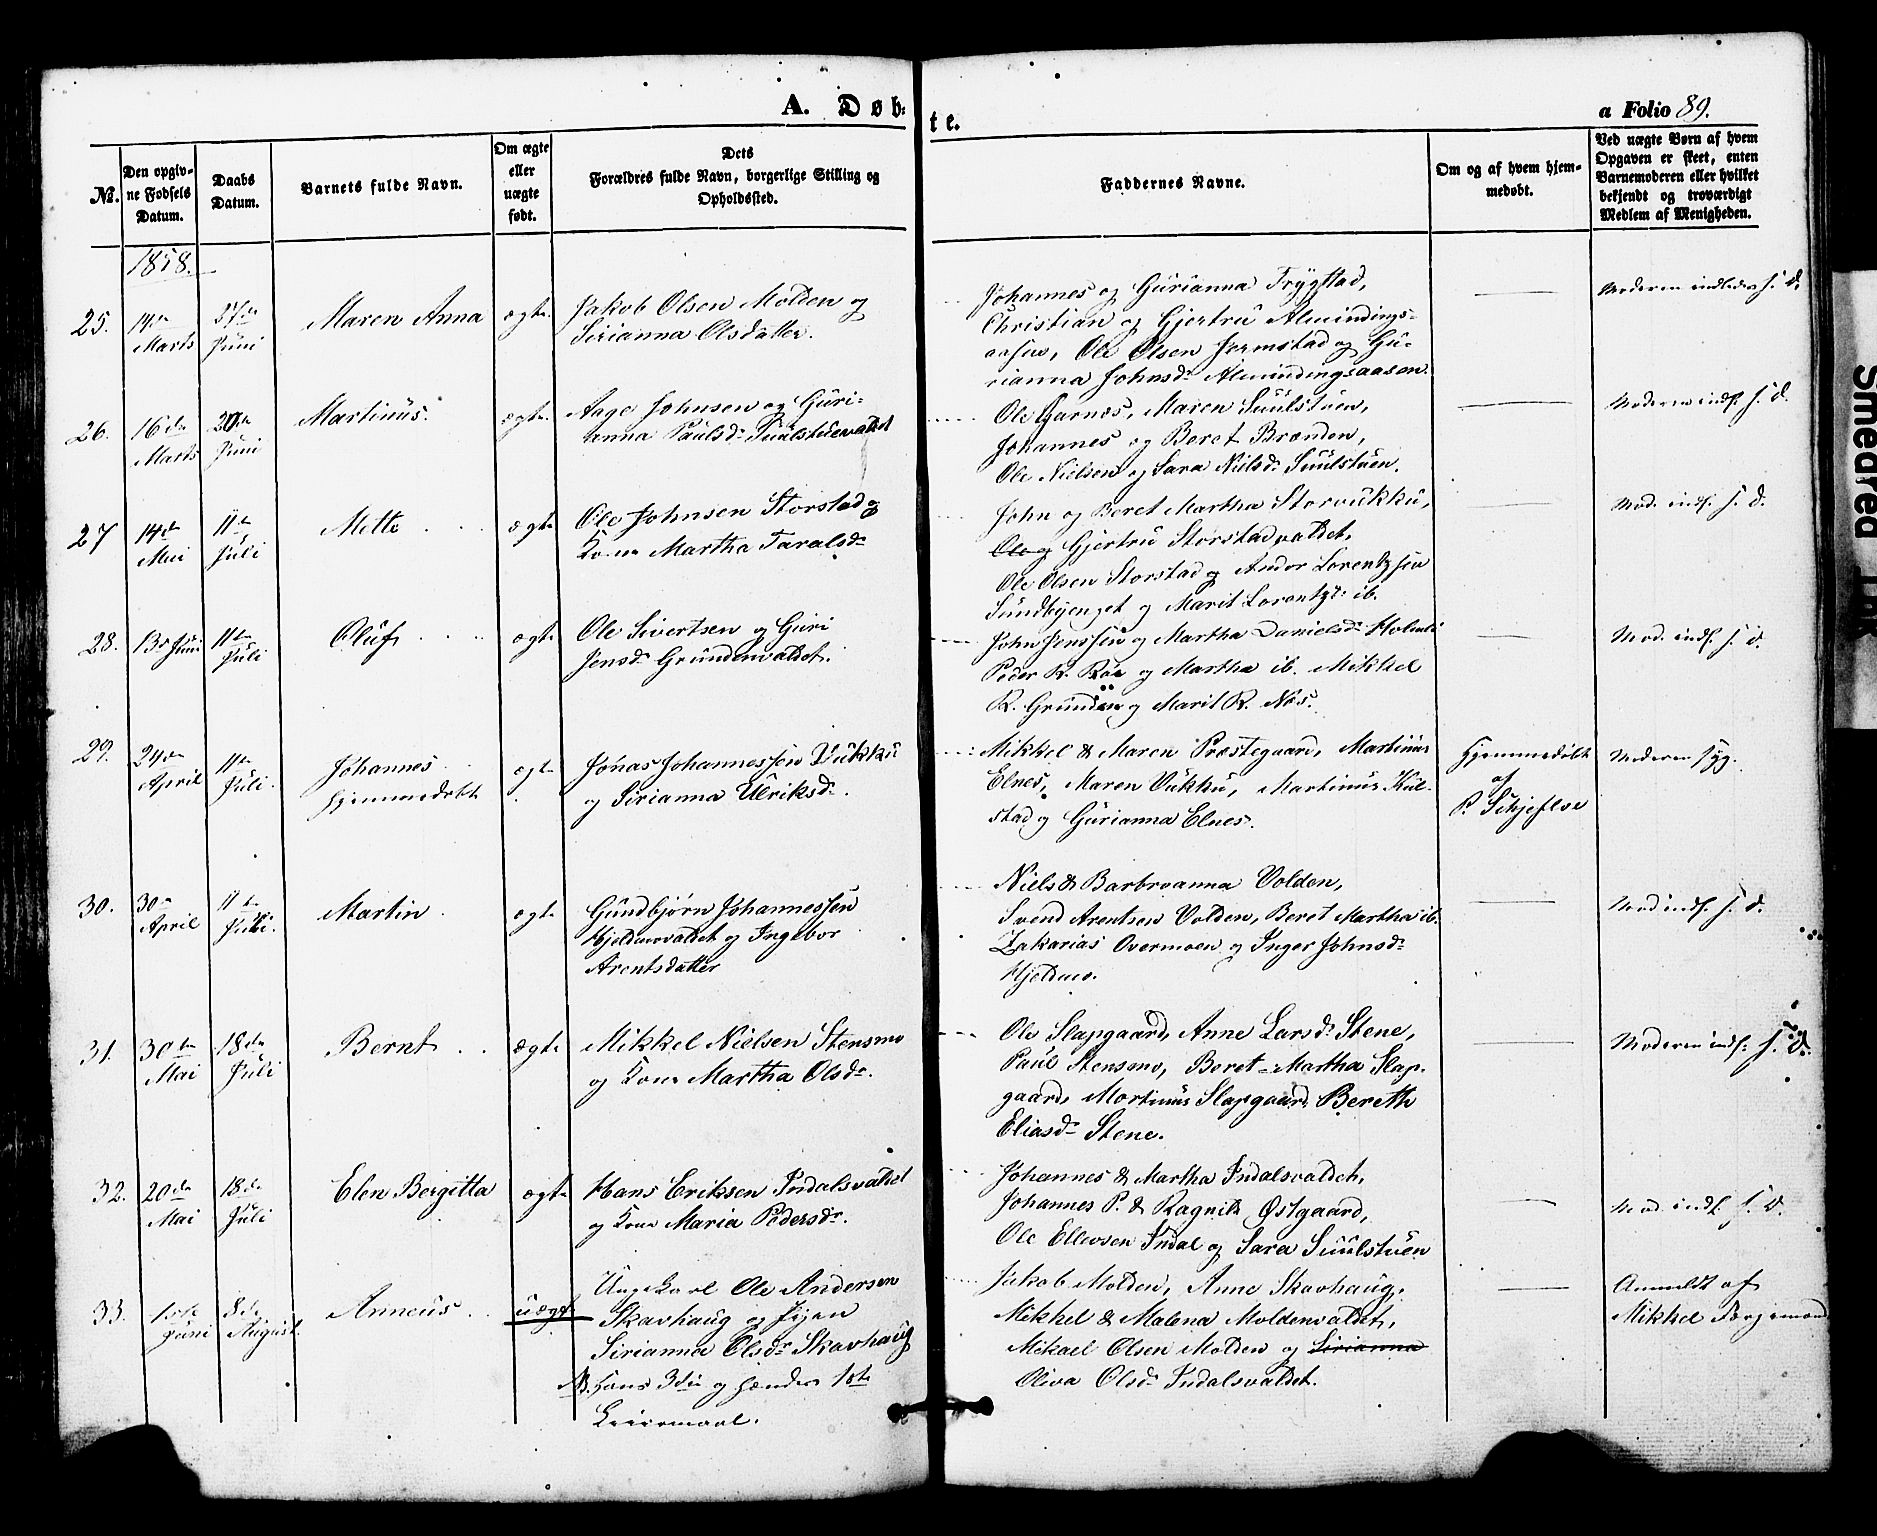 A. Døb-
te.
a Folio 89.
No.
Den opgiv-
ne Fødsels
Datum.
Daabs
Datum.
Barnets fulde Navn.
Om ægte
eller
uægte
født.
Dets
Forældres fulde Navn, borgerlige Stilling og
Opholdssted.
Faddernes Navne.
Om og af hvem hjem-
medøbt.
Ved uægte Børn af hvem
Opgaven er skeet, enten
Barnemoderen eller hvilket
bekjendt og troværdigt
Medlem af Menigheden.
1858.
25.
14de
Marts
27de
Juni
Maren Anna
ægte
Jakob Olsen Molden og
Sirianna Olsdatter.
Johannes og Gurianna Trygstad,
Christian og Gjertru Almindings-
aasen, Ole Olsen Jermstad og Gu-
rianna Johnsdr Almindingsaasen.
Moderen indledes s. d.
26.
16de
Marts
20de
Juni
Martinus.
ægte
Aage Johnsen og Guri-
anna Paulsdr Suulstuevaldet
Ole Garnæs, Maren Suulstuen,
Johannes og Beret Brænden,
Ole Nielsen og Sara Nielsdr Suulstuen.
Moderen indl. s. d.
27
14de
Mai
11te
Juli
Mette
ægte
Ole Johnsen Storstad og
Kone Martha Taralsdr
John og Beret Martha Storvukku,
Ole og Gjertru Storstadvaldet,
Ole Olsen Storstad og Andor Lorentzsen
Sundbyenget og Marit Lorentzdr ib.
Mod. indl. s. d.
28.
13 Juni
11te
Juli
Oluf
ægte
Ole Sivertsen og Guri
Jensdr Grundenvaldet.
John Jenssen og Martha Danielsdr Holmli
Peder R. Røe og Martha ib. Mikkel
R. Grunden og Marit R. Næs.
Mod. indl. s. d.
29.
24de
April
11te
Juli.
Johannes
hjemmedøbt
ægte
Jonas Johannessen Vukku
og Sirianna Ulriksdr.
Mikkel & Maren Præstegaard, Martinus
Elnes, Maren Vukku, Martinus Kul-
stad og Gurianna Elnes.
Hjemmedøbt
af
P. Skjeflo
Moderen syg.
30.
30te
April
11te
Juli.
Martin
ægte
Gundbjørn Johannessen
Hjeldmovaldet og Ingebor
Arentsdatter
Niels & Barbroanna Volden,
Svend Arentsen Volden, Beret Martha ib.
Zakarias Overmoen og Inger Johnsdr
Hjeldmo.
Mod indl. s. d.
31.
30te
Mai
18de
Juli
Bernt
ægte
Mikkel Nielsen Stensmo
og Kone Martha Olsdr.
Ole Slapgaard, Anne Larsdr Stene,
Paul Stensmo, Beret-Martha Slap-
gaard, Martinus Slapgaard, Bereth
Eliasdr Stene.
Moderen indl. s. d.
32.
20de
Mai
18de
Juli
Elen Bergitta
ægte
Hans Eriksen Indalsvaldet
og Kone Maria Pedersdr.
Johannes & Martha Indalsvaldet,
Johannes P. & Ragnild Østgaard,
Ole Ellevsen Indal og Sara Suulstuen
Mod. indl. s. d.
33.
1ste
Juni
8de
August.
Anneus
uægte
Ungekarl Ole Andersen
Skavhaug og Pigen
Sirianna Olsdr Skavhaug
NB. Hans 3die og hendes 1ste
Leiermaal.
Jakob Molden, Anne Skavhaug,
Mikkel & Malena Moldenvaldet,
Mikael Olsen Molden og Sirianna
Oliva Olsdr Indalsvaldet.
Anmeldt af
Mikkel Færgemand
Smedred